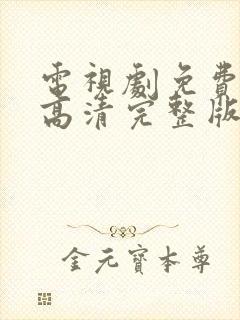 電視劇免費
高清完整版
金元寶本尊